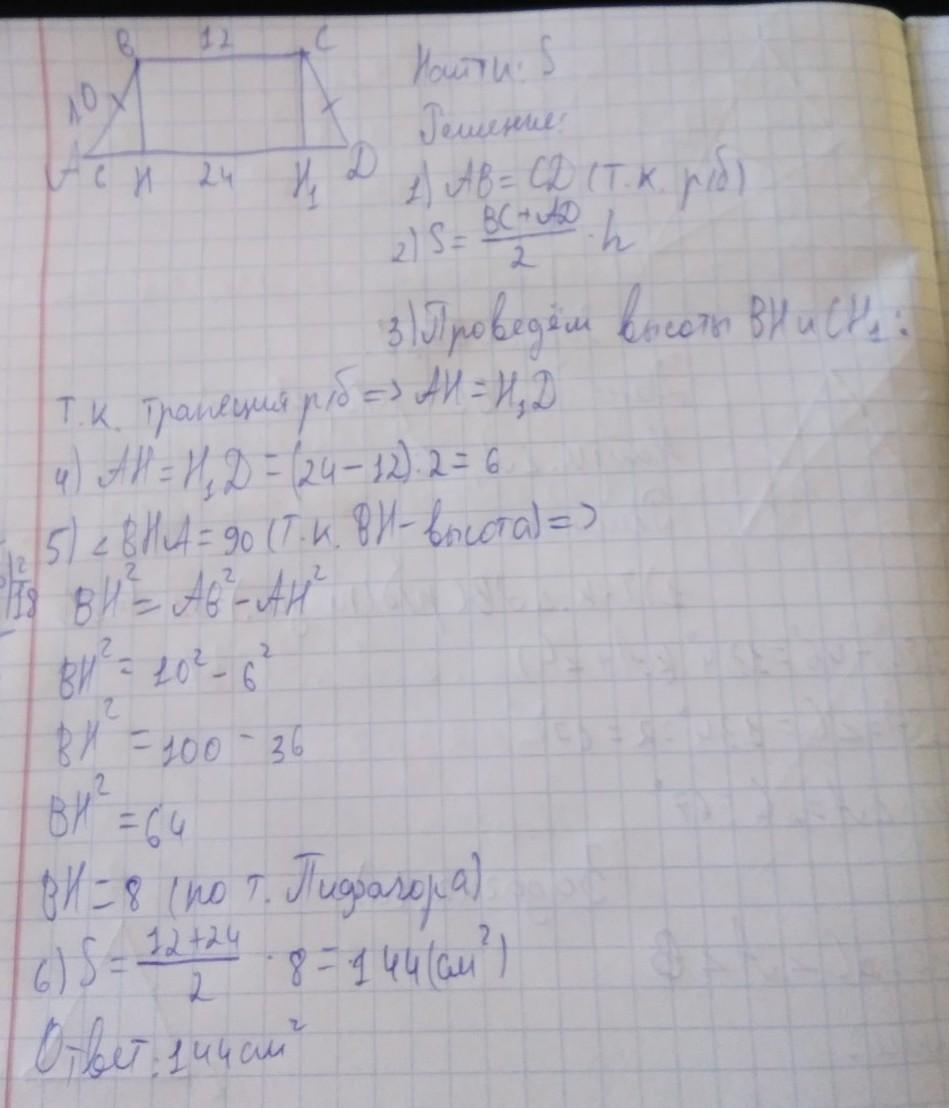 B 12 C
10
A 6 H 24 H₁ D
Найти: S
Решение:
1) AB = CD (т.к. р/б)
2) S = (BC + AD)/2 · h
3) Проведём высоты BH и CH₁:
т.к. трапеция р/б => AH = H₁D
4) AH = H₁D = (24 - 12) · 2 = 6
5) ∠BHA = 90 (т.к. BH - высота) =>
BH² = AB² - AH²
BH² = 10² - 6²
BH² = 100 - 36
BH² = 64
BH = 8 (по т. Пифагора)
6) S = (12+24)/2 · 8 = 144 (см²)
Ответ: 144 см²